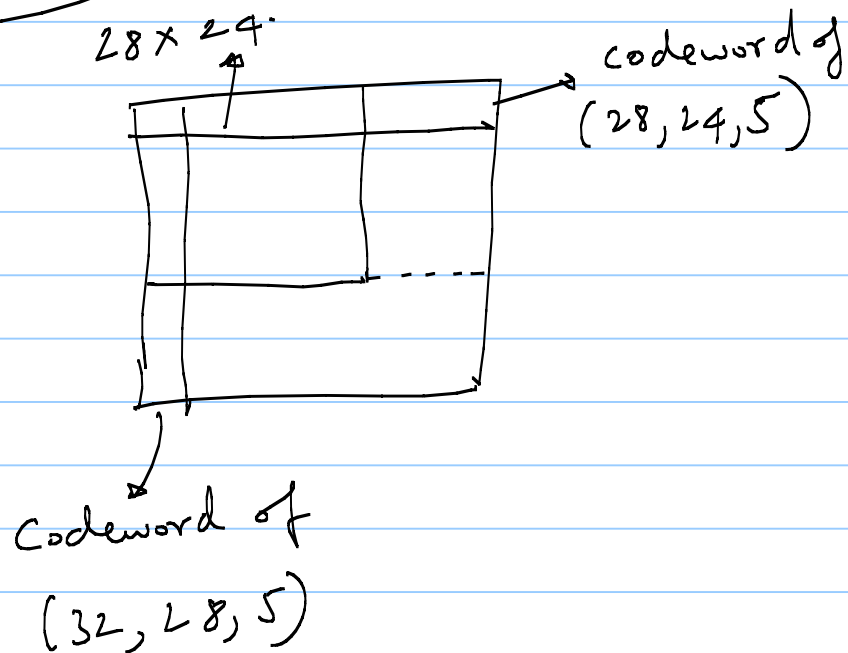 28 × 24.
codeword of
(28, 24, 5)
Codeword of
(32, 28, 5)